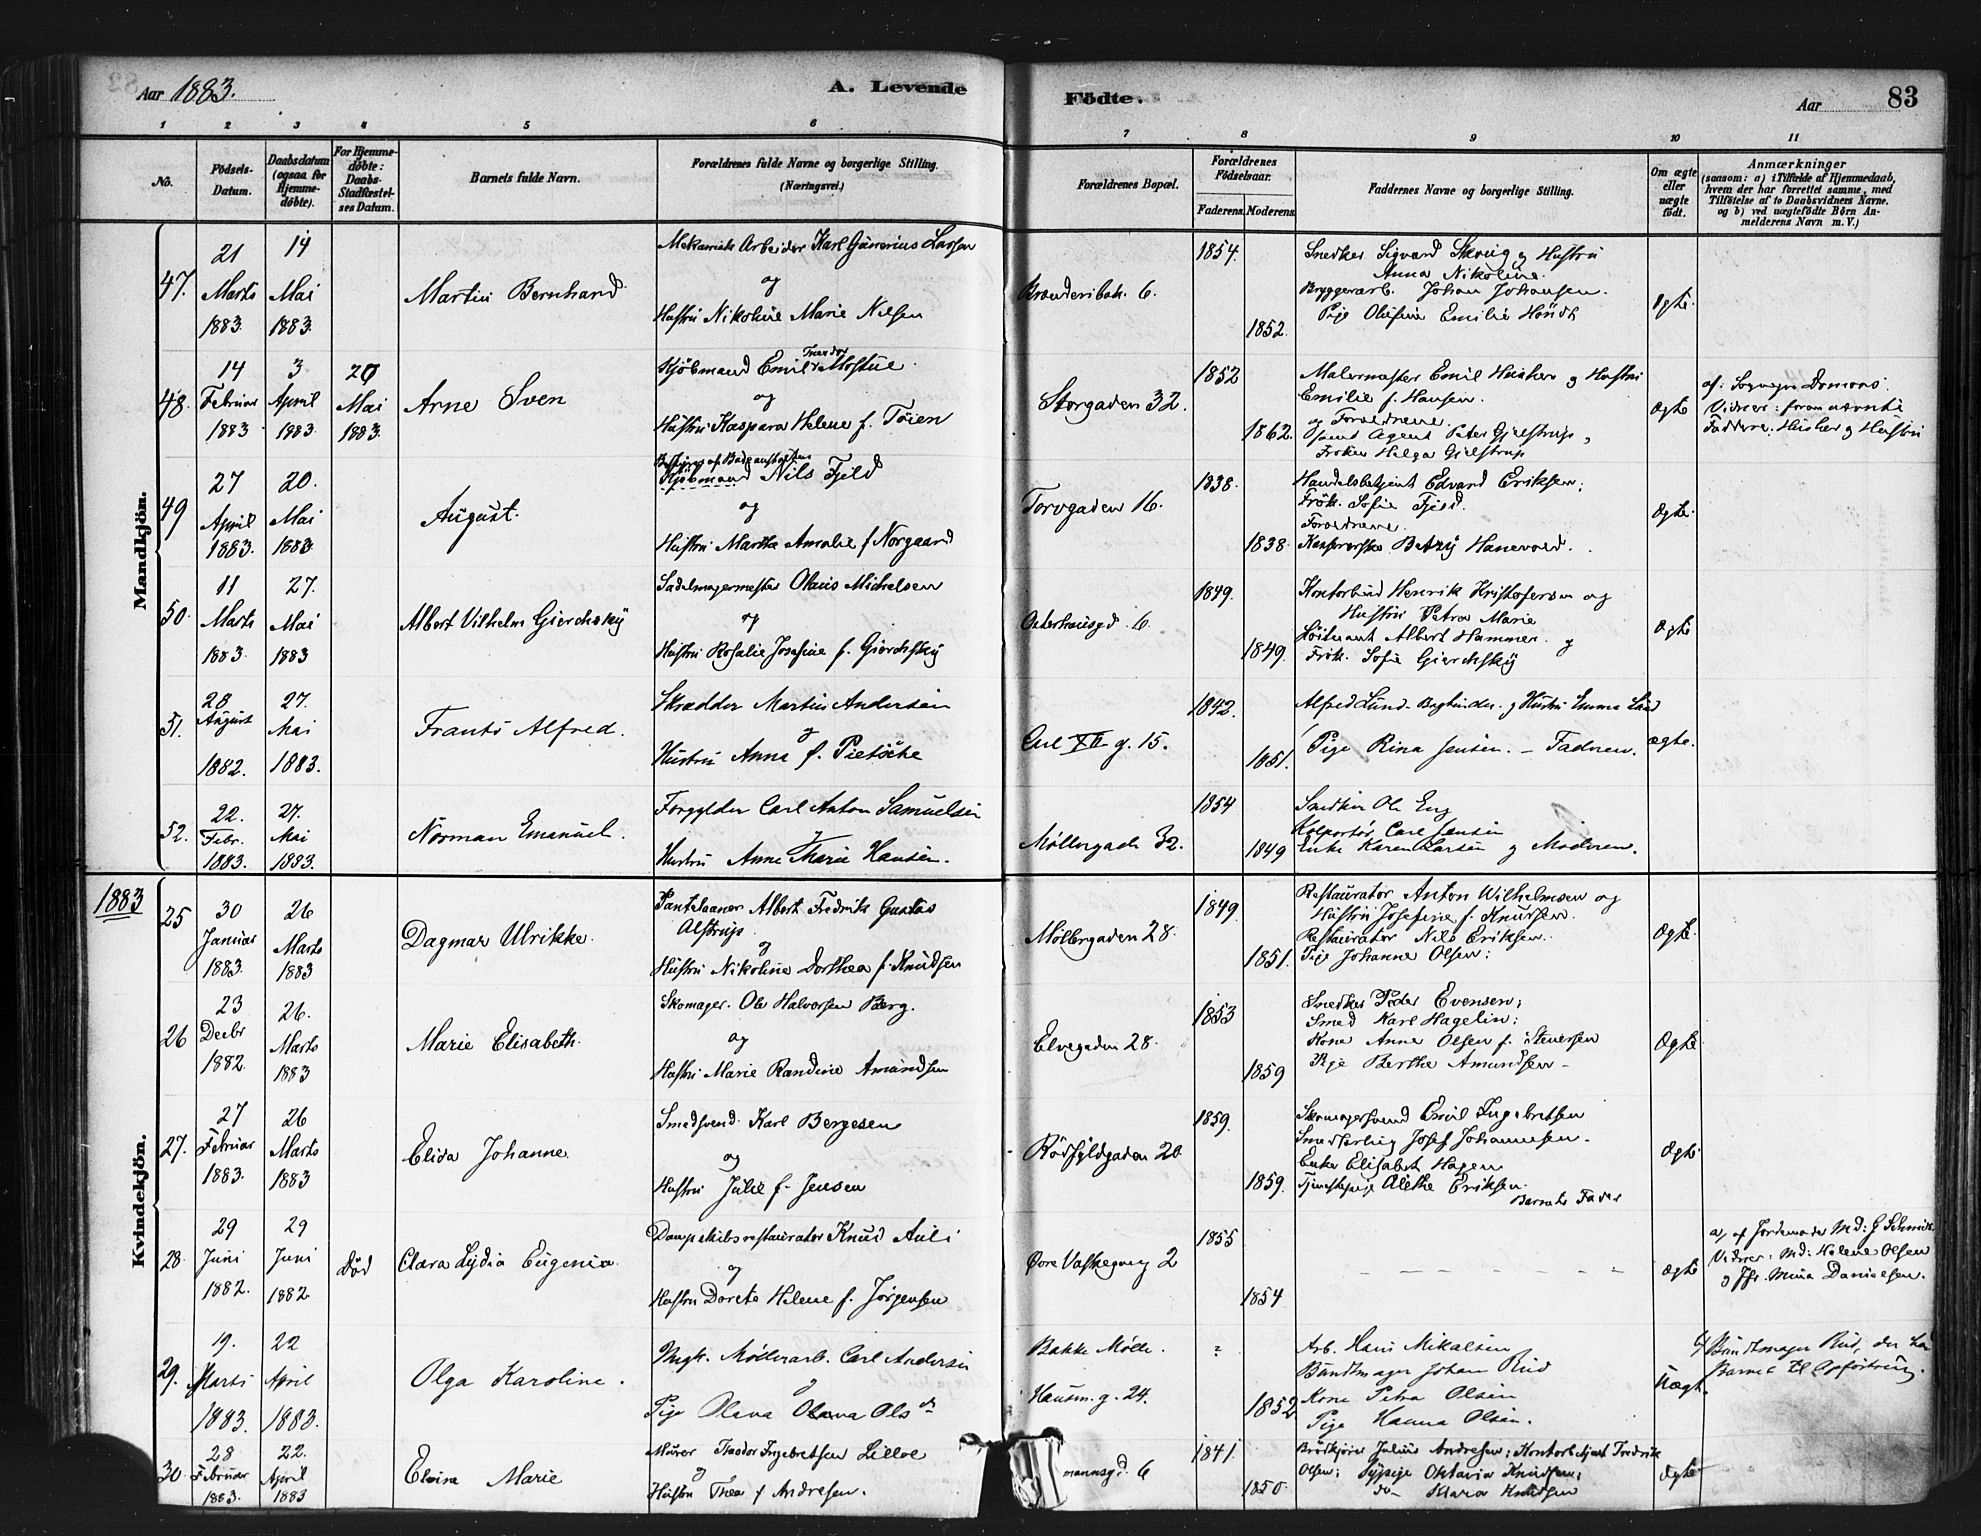 Aar 1883.
A. Levende
Födte.
Aar
83
1 2 3 4 5 6 7 8 9 10 11
No.
Födsels-Datum.
Daabsdatum (ogsaa for Hjemme-döbte).
For Hjemme-döbte: Daabs-Stadfæstel-ses Datum.
Barnets fulde Navn.
Forældrenes fulde Navne og borgerlige Stilling. (Næringsvei.)
Forældrenes Bopæl.
Forældrenes Födselsaar.
Faderens. Moderens.
Faddernes Navne og borgerlige Stilling.
Om ægte eller uægte födt.
Anmærkninger
(saasom: a) i Tilfælde af Hjemmedaab,
hvem der har forrettet samme, med
Tilföielse af to Daabsvidners Navne.
og b) ved uægtefödte Börn An-
melderens Navn m. V.)
Mandkjön.
47. 21 Marts 1883 14 Mai 1883.
Martin Bernhard
Mekanisk Arbeider Karl Gunerius Larsen
og
Hustru Nikoline Marie Nilsen
6.
1854.
1852.
Snedker Sigvard Skoug og Hustru
Anna Nikoline.
Bryggerarb. Johan Johansen.
Pige Olefine Emilie
ægte.
48. 14 Februar 1883 3 April 1883 20 Mai 1883.
Arne Sven
Kjöbmand Emil Mostue
og
Hustru Kaspara Helene f. Töien
Storgaden 32.
1852
1862.
Malermester Emil og Hustru
Emilie f. Hansen.
og Forældrene.
samt Agent Peter Gjelstrup,
Fröken Helga Gjelstrup
Ægte
af: Sogneprs
Vidner: fornævnte
Faddere: og Hustru
49 27 April 1883. 20. Mai 1883.
August.
Bestyrer af Badeanstalten
Kjöbmand Nils Fjeld
og
Hustru Marthe Amalie f Norgaard
Torvgaden 16.
1838.
1838.
Handelsbetjent Edvard Eriksen;
Frök. Sofie Fjeld.
Forældrene.
Betzy Hanevold.
Ægte.
50. 11 Marts 1883. 27. Mai 1883
Albert Vilhelm Gierchsky
Sadelmagermester Olaus Michelsen
og
Hustru Rosalie Josefine f. Gierchsky
Osterhausgd. 6.
1849.
1849.
Kontorbud Henrik Kristofersen og
Hustru Petra Marie
Löitnant Albert Hammer. og
Frök. Sofie Gierchsky
Ægte
51. 28 August 1882. 27. Mai 1883.
Frants Alfred.
Skrædder Martin Andersen
og
Hustru Anna f. Pietsche
Carl XII g. 15.
1842.
1851.
Alfred Lund Bogbinder. og Hustru Emma Lund
Pige Rina Jensen. — Faderen.
ægte.
52. 22. Febr. 1883. 27. Mai 1883.
Norman Emanuel.
Forgylder Carl Anton Samuelsen
og
Hustru Anne Marie Hansen.
Möllergade 32.
1854
1849
Snedker Ole Eng
Kolportör Carl Jensen
Enke Karen Larsen og Moderen.
1883
Kvindekjön.
25 30 Januar 1883. 26 Marts 1883
Dagmar Ulrikke.
Pantelaaner Albert Fredrik Gustav
Alstrup.
og
Hustru Nikoline Dorthea f. Knudsen
Möllergaden 28.
1849.
1851.
Restauratör Anton Wilhelmsen og
Hustru Josefine f. Knudsen.
Restauratör Nils Eriksen.
Pige Johanne Olsen:
Ægte.
26 23 Decbr 1882. 26. Marts 1883
Marie Elisabeth.
Skomager. Ole Halvorsen Berg.
og
Hustru Marie Randine Amundsen
Elvegaden 28.
1853
1859
Snedker Peder Evensen;
Smed Karl Hagelin;
Kone Anne Olsen f. Stenersen
Pige Berthe Amundsen -
Ægte
27. 27 Februar 1883. 26 Marts 1883
Elida Johanne
Smedsvend Karl Bergesen
og
Hustru Julie f. Jensen
Rödfyldgaden 20
1859.
1859.
Skomagersvend Emil Ingebretsen
Smedlærling Josef Johannesen.
Enke Elisabet Hagen
Tjenestepige Alethe Eriksen.
Barnets Fader
Ægte
28. 29 Juni 1882. 29 Juni 1882
Död
Clara Lydia Eugenia.
Dampskibsrestauratör Knud Auli
og
Hustru Dorete Helene f. Jörgensen
Övre Vaskegang 2
1855
1854
— — — — — —
Ægte
a, af Jordemoder Md: G Schmidt.
Vidner: Md: Helene Olsen
og Jfr. Mina Danielsen.
29. 19. Marts 1883. 22 April 1883.
Olga Karoline.
Ungk. Möllerarb. Carl Andersen
og
Pige Olava Olsdr
Bakke Mölle.
Hausm. g. 24.
1852
Arb. Hans Mikalsen
Bundtmager Johan Rud
Kone Petra Olsen
Pige Hanna Olsen.
Uægt.
b/ Bundtmager Rud, der har
Barnet til Opfostring.
30. 28 Februar 1883. 22. April 1883
Elvine Marie
Murer Theodor Ingebretsen Lilloe
og
Hustru Thea f Andresen.
mannsgd. 6
1841.
1850.
Brödkjörer Julius Andresen; Kontorbetjent Fredrik
Olsen; Sypige Oktavia Knudsen;
do— Klara Knudsen
Ægte